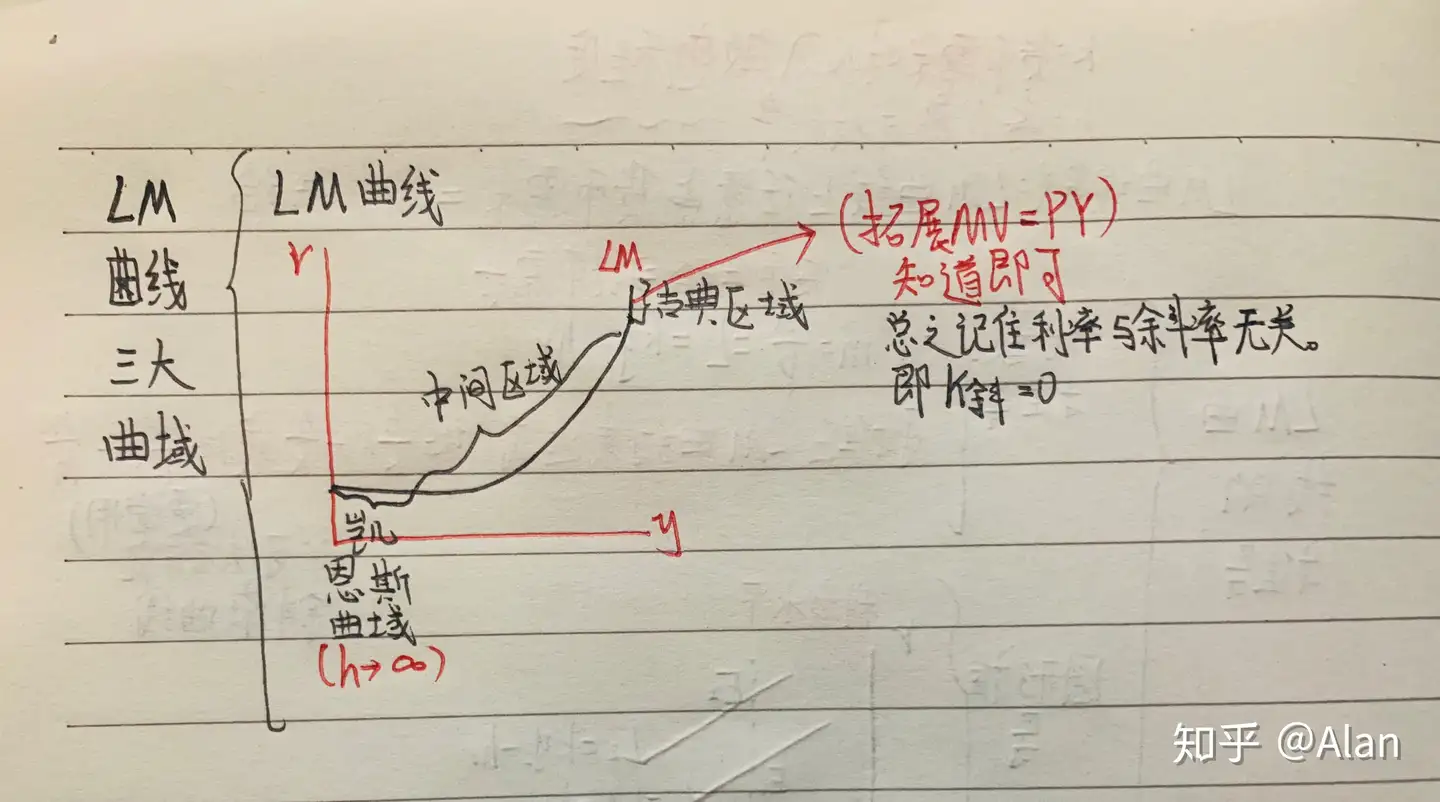 LM
曲线
三大
曲域
LM曲线
r
LM
古典区域
中间区域
y
凯
恩斯
曲域
(h→∞)
(拓展MV=PY)
知道即可
总之记住利率与余斜率无关。
即K斜=0
知乎 @Alan